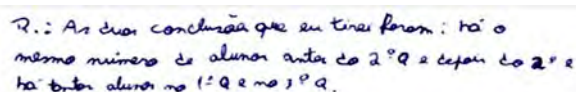 R.: As duas conclusão que eu tirei foram: há o
mesmo número de alunos antes do 2º Q e depois do 2º e
há tantos alunos no 1º Q e no 3º Q.